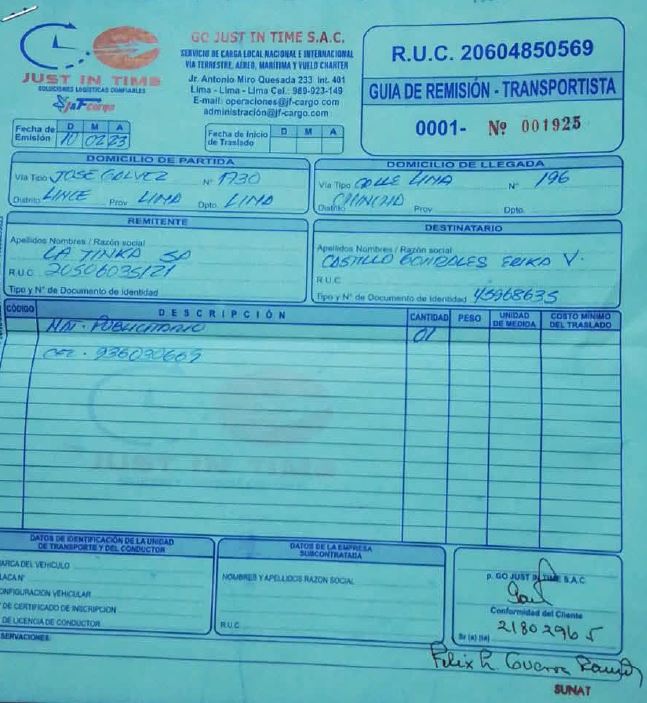 JUST IN TIME
SOLUCIONES LOGÍSTICAS CONFIABLES
J&F Cargo
GO JUST IN TIME S.A.C.
SERVICIO DE CARGA LOCAL NACIONAL E INTERNACIONAL
VIA TERRESTRE, AÉREO, MARÍTIMA Y VUELO CHARTER
Jr. Antonio Miro Quesada 233 Int. 401
Lima - Lima - Lima Cel.: 989-923-149
E-mail: operaciones@jf-cargo.com
administración@jf-cargo.com
R.U.C. 20604850569
GUIA DE REMISIÓN - TRANSPORTISTA
0001- Nº 001925
Fecha de Emisión D M A
10 02 23
Fecha de Inicio de Traslado D M A
DOMICILIO DE PARTIDA
Vía Tipo JOSE GALVEZ Nº 1730
Distrito LINCE Prov LIMA Dpto. LIMA
DOMICILIO DE LLEGADA
Vía Tipo CALLE LIMA Nº 196
Distrito CHINCHA Prov Dpto.
REMITENTE
Apellidos Nombres / Razón social
LA TINKA SA
R.U.C. 20506035121
Tipo y N° de Documento de Identidad
DESTINATARIO
Apellidos Nombres / Razón social
CASTILLO GONZALES ERIKA V.
R.U.C
Tipo y N° de Documento de Identidad 45968635
CÓDIGO DESCRIPCIÓN CANTIDAD PESO UNIDAD DE MEDIDA COSTO MÍNIMO DEL TRASLADO
MAT. PUBLICITARIO 01
CEL. 936030669
JUST IN TIME
DATOS DE IDENTIFICACIÓN DE LA UNIDAD
DE TRANSPORTE Y DEL CONDUCTOR
ARCA DEL VEHÍCULO
LACA N°
ONFIGURACIÓN VEHICULAR
DE CERTIFICADO DE INSCRIPCION
DE LICENCIA DE CONDUCTOR
SERVACIONES:
DATOS DE LA EMPRESA
SUBCONTRATADA
NOMBRES Y APELLIDOS RAZON SOCIAL
R.U.C.
p. GO JUST IN TIME S.A.C
Conformidad del Cliente
21802965
Sr (a) (ta)
Felix R Guerra
SUNAT